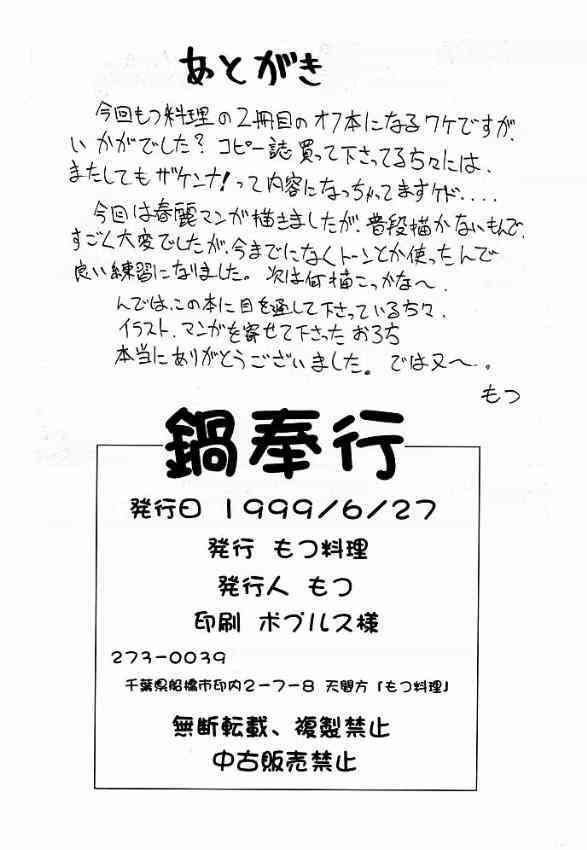 あとがき
今回もつ料理の2冊目のオフ本になるワケですが、
いかがでした？コピー誌買って下さってる方々には、
またしてもザケンナ！って内容になっちゃってますケド....
今回は春麗マンガ描きましたが、普段描かないもんで、
すごく大変でしたが、今までになくトーンとか使ったんで
良い練習になりました。次は何描こっかな〜、
んでは、この本に目を通して下さっている方々、
イラスト、マンガを寄せて下さった おろち
本当にありがとうございました。では又〜。
もつ
鍋奉行
発行日 1999/6/27
発行 もつ料理
発行人 もつ
印刷 ポプルス様
273-0039
千葉県船橋市印内2-7-8 天間方「もつ料理」
無断転載、複製禁止
中古販売禁止